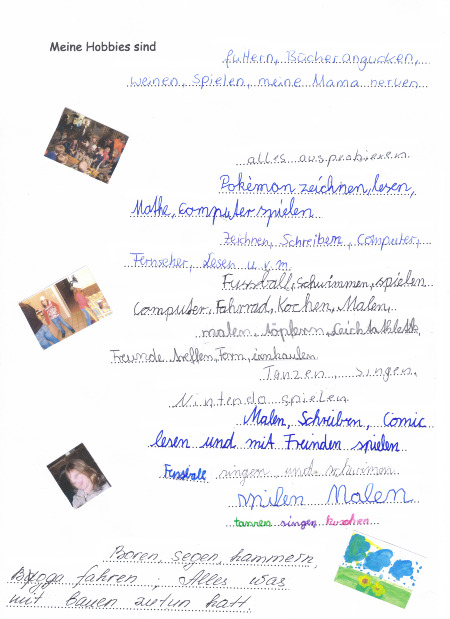 Meine Hobbies sind
futtern, Bücher angucken,
weinen, spielen, meine Mama nerven
alles ausprobieren.
Pokémon zeichnen, lesen,
Mathe, computer spielen
Zeichnen, Schreiben, Computer,
Fernseher, Lesen u.v.m.
Fussball, Schwimmen, spielen
Computer, Fahrrad, Kochen, Malen,
malen, töpfern, Leichtathletik,
Freunde treffen, Farm, einkaufen
Tanzen, singen,
Nintendo spielen
Malen, Schreiben, Comic
lesen und mit Freinden spielen
Fussball singen und schwimen
spilen Malen
tanzen singen
Boren, segen, hammern,
fahren, Alles was
mit Bauen zutun hatt.